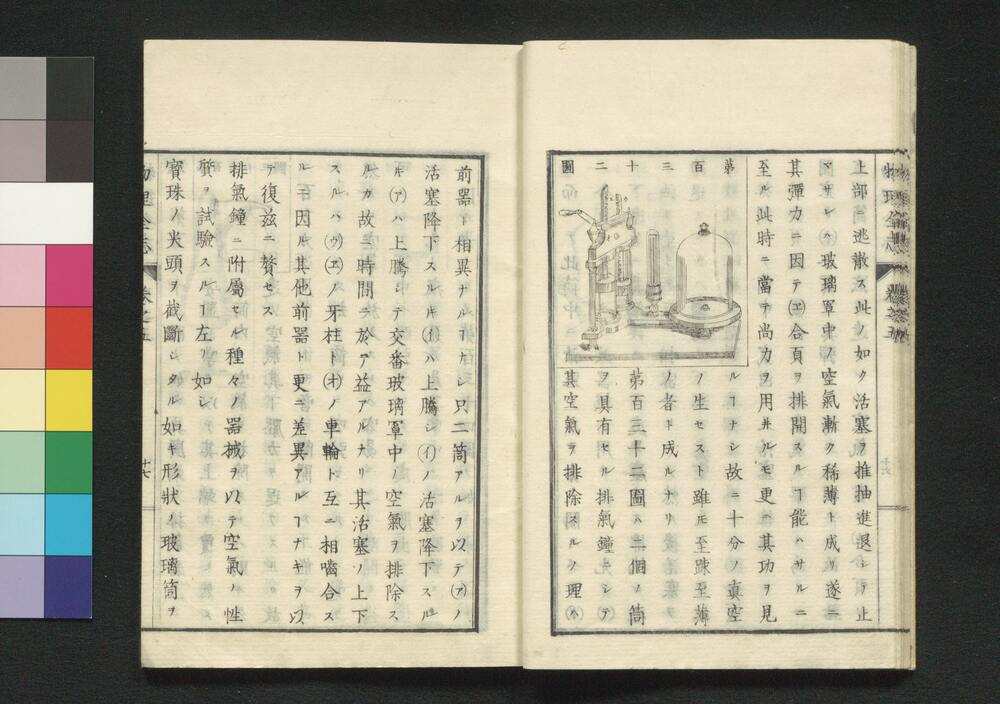 上部ニ逃散ス此ノ如ク活塞ヲ推抽進退シテ止
マサレハ玻璃罩中ノ空氣漸ク稀薄ト成リ遂ニ
其彈力ニ因テ㋓合頁ヲ排開スルヿ能ハサルニ
至ル此時ニ當テ尚力ヲ用井ルモ更ニ其功ヲ見
ルヿナシ故ニ十分ノ真空
ノ生セスト雖モ至踈至薄
ノ者ト成ルナリ
第百三十二圖ハ二個ノ筒
ヲ具有セル排氣鐘ニシテ
其空氣ヲ排除スルノ理㋩
第百三十二圖
前器ト相異ナルヿナシ只二筒アルヲ以テ㋐ノ
活塞降下スルキ㋑ハ上騰シ㋑ノ活塞降下スル
キ㋐ハ上騰シテ交番玻璃罩中ノ空氣ヲ排除ス
ルカ故ニ時間ニ於テ益アルナリ其活塞ノ上下
スルハ㋒㋓ノ牙柱ト㋔ノ車輪ト互ニ相嚙合ス
ルニ因ル其他前器ト更ニ差異アルヿナキヲ以
テ復茲ニ贅セス
排氣鐘ニ附屬セル種々ノ器械ヲ以テ空氣ノ性
質ヲ試驗スルヿ左ノ如シ
寳珠ノ尖頭ヲ截斷シタル如キ形狀ノ玻璃筒ヲ
物理全志
卷之五